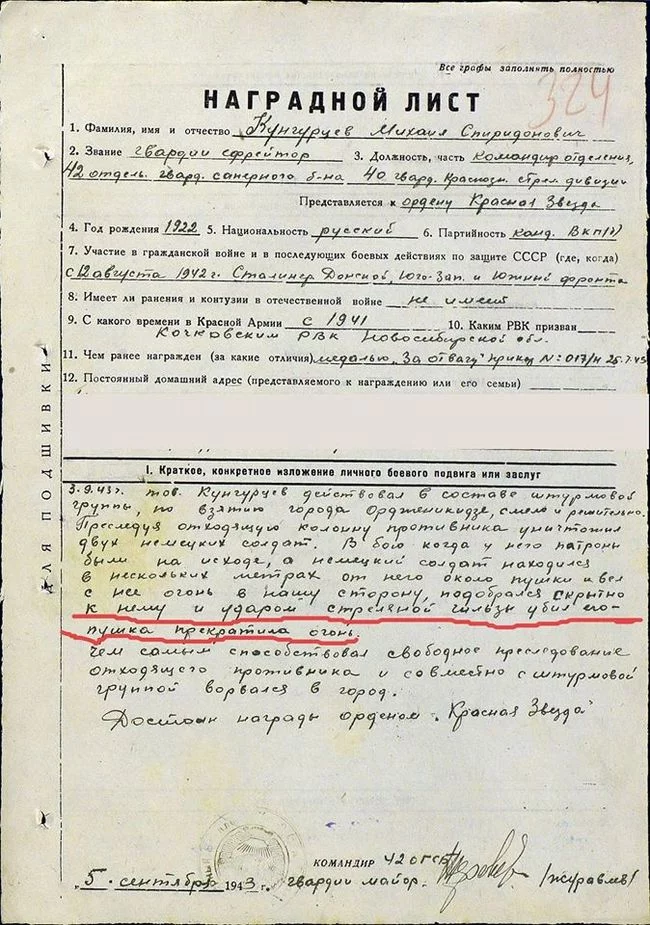 Все графы заполнять полностью
324
НАГРАДНОЙ ЛИСТ
1. Фамилия, имя и отчество Кунгурцев Михаил Спиридонович
2. Звание гвардии ефрейтор 3. Должность, часть командир отделения,
42 отдельн. гвард. саперного б-на 40 гвард. Краснозн. стрел. дивизии
Представляется к ордену Красная Звезда
4. Год рождения 1922 5. Национальность русский 6. Партийность канд. ВКП(б)
7. Участие в гражданской войне и в последующих боевых действиях по защите СССР (где, когда)
с 12 августа 1942 г. Сталингр Донской, Юго-Зап. и Южный фронта
8. Имеет ли ранения и контузии в отечественной войне не имеет
9. С какого времени в Красной Армии с 1941 10. Каким РВК призван
Кочковским РВК Новосибирской обл.
11. Чем ранее награжден (за какие отличия) медалью "За отвагу" приказ №: 017/н 25.7.43
12. Постоянный домашний адрес (представляемого к награждению или его семьи)
ДЛЯ ПОДШИВКИ
I. Краткое, конкретное изложение личного боевого подвига или заслуг
3.9.43г. тов. Кунгурцев действовал в составе штурмовой
группы, по взятию города Орджоникидзе, смело и решительно.
Преследуя отходящую колонну противника уничтожил
двух немецких солдат. В бою когда у него патроны
были на исходе, а немецкий солдат находился
в нескольких метрах от него около пушки и вел
с нее огонь в нашу сторону, подобрался скрытно
к нему и ударом стреляной гильзы убил его-
пушка прекратила огонь.
Чем самым способствовал свободное преследование
отходящего противника и совместно с штурмовой
группой ворвался в город.
Достоин награды орденом "Красная Звезда"
КОМАНДИР 42 ОГСБ
"5" сентября 1943 г. гвардии майор. /Журавлев/